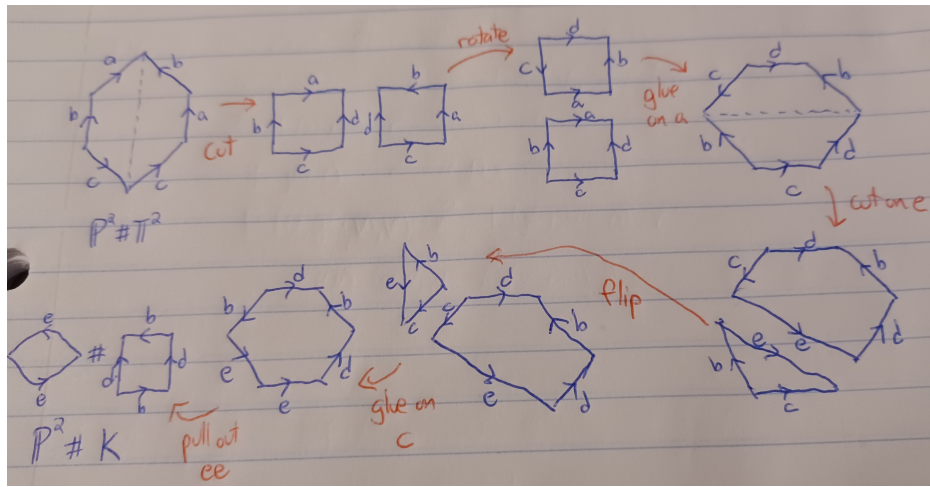 a b
b a
c c
ℙ²#𝕋²
cut
a
b d
c
b
d a
c
rotate
d
c b
a
a
b d
c
glue
on a
d
c b
b d
c
cut on e
d
c b
e d
e
b
c
flip
b
e
c
d
c b
e d
glue on
c
d
b b
e d
e
pull out
ee
e
e
#
b
d d
b
ℙ² # K